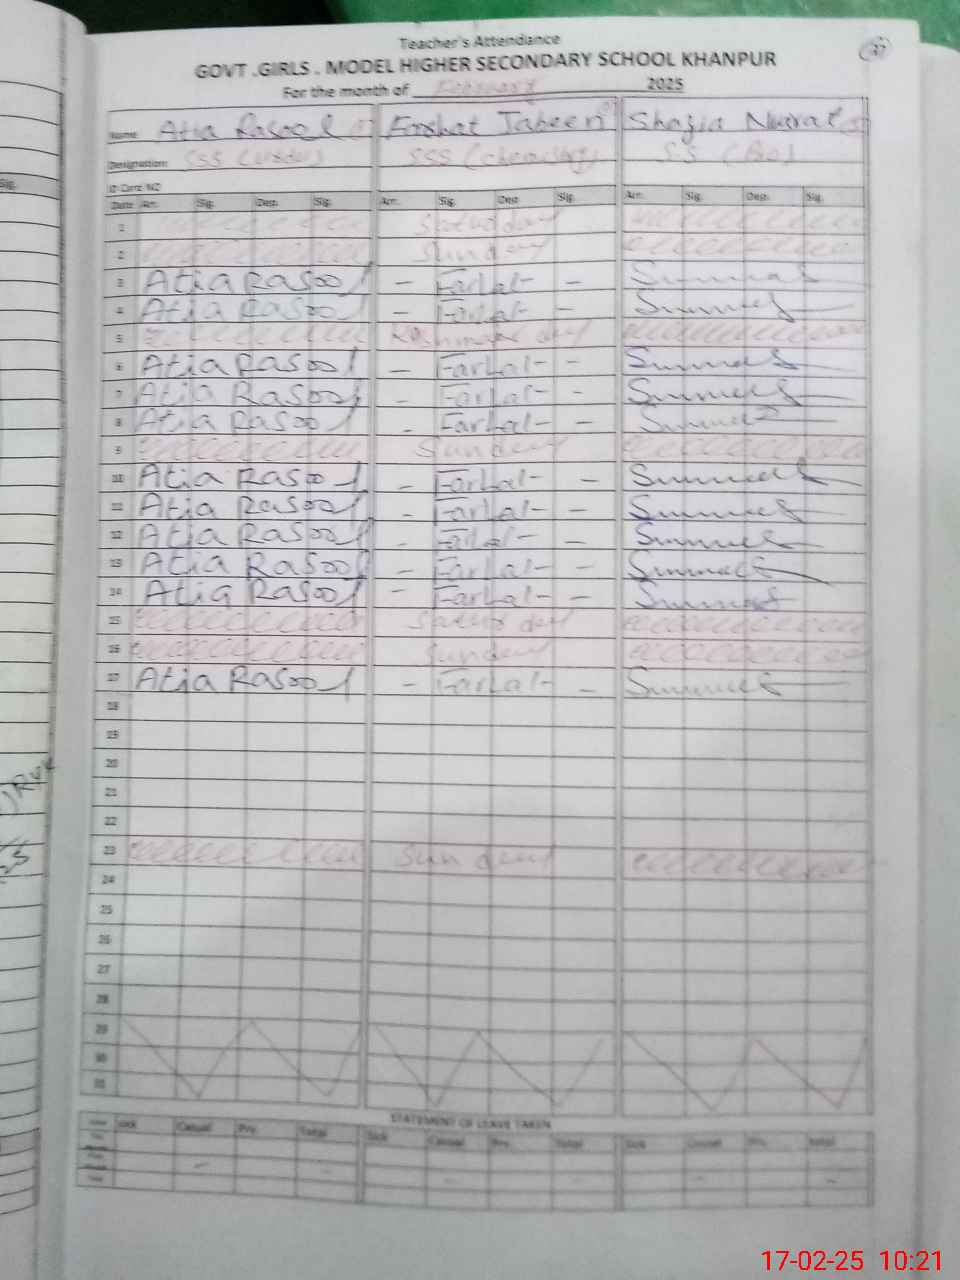 Teacher's Attendance
GOVT .GIRLS . MODEL HIGHER SECONDARY SCHOOL KHANPUR
For the month of February 2025
Name: Atia Rasool Farhat Jabeen Shazia Nusrat
Designation: SSS (Urdu) SSS (chemistry) SS (Bio)
ID Card NO
Date Arr. Sig. Dep. Sig. Arr. Sig. Dep. Sig. Arr. Sig. Dep. Sig.
1 Saturday
2 Sunday
3 Atia Rasool - Farhat -
4 Atia Rasool - Farhat -
5 Kashmir day
6 Atia Rasool - Farhat -
7 Atia Rasool - Farhat -
8 Atia Rasool - Farhat -
9 Sunday
10 Atia Rasool - Farhat -
11 Atia Rasool - Farhat -
12 Atia Rasool - Farhat -
13 Atia Rasool - Farhat -
14 Atia Rasool - Farhat -
15 Saturday
16 Sunday
17 Atia Rasool - Farhat -
18
19
20
21
22
23 Sunday
24
25
26
27
28
29
30
31
STATEMENT OF LEAVE TAKEN
Sick Casual Prv. Total Sick Casual Prv. Total Sick Casual Prv. Total
17-02-25 10:21